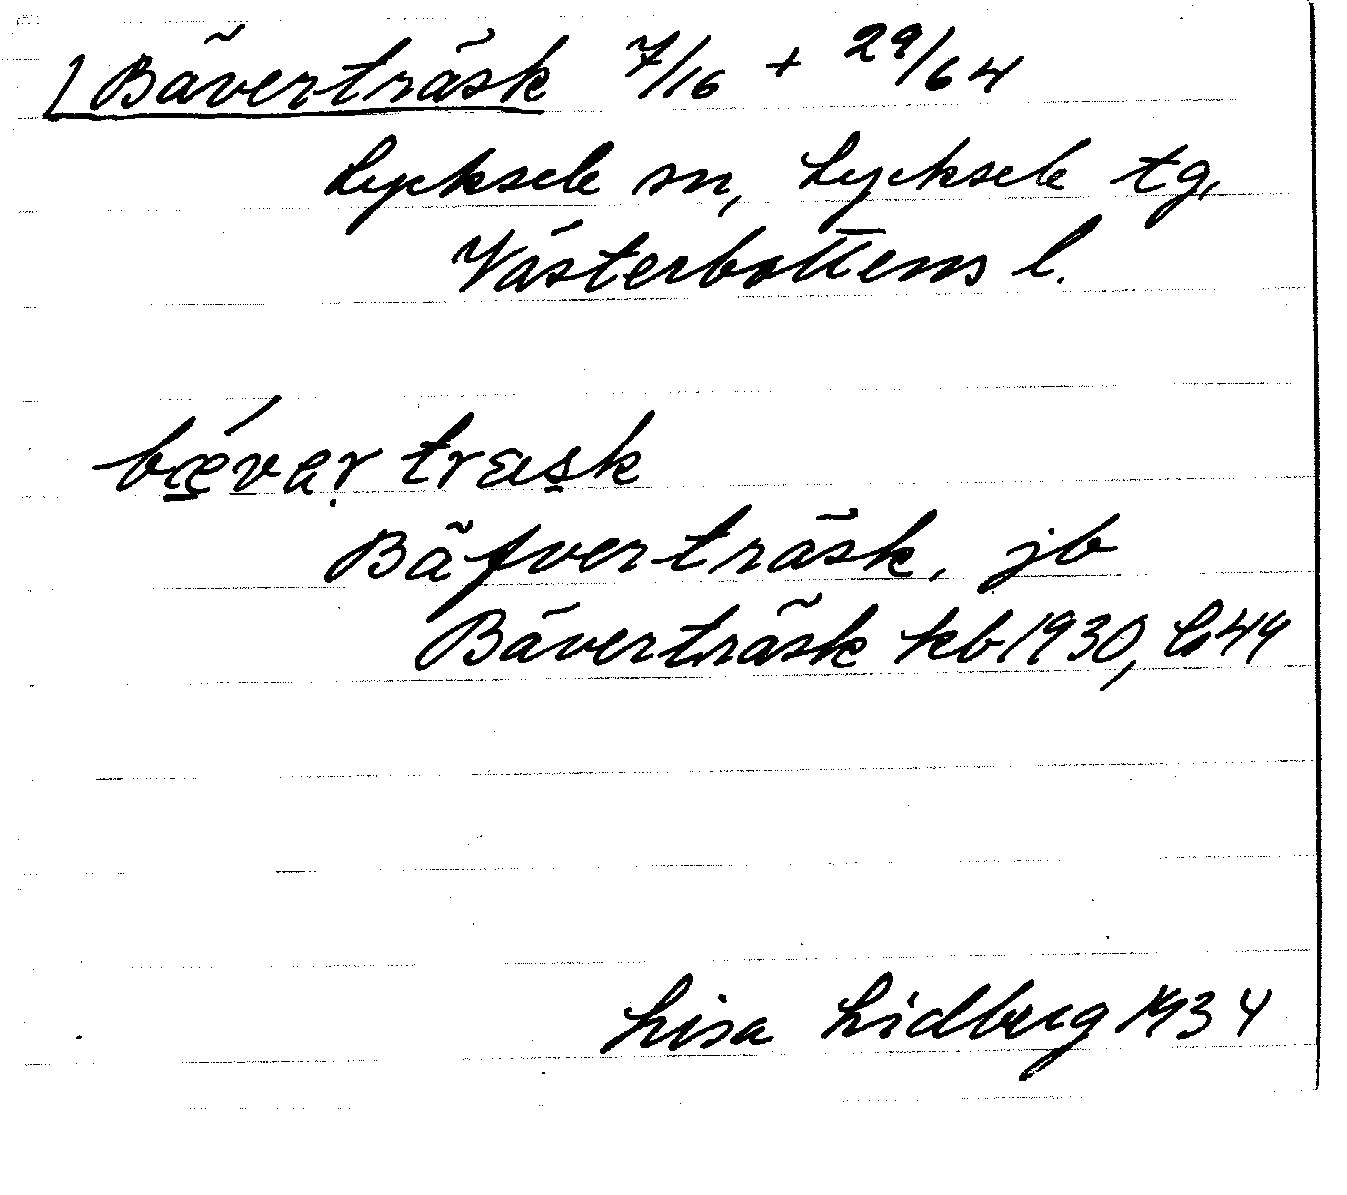 1 Bäverträsk 7/16 + 29/64
Lycksele sn, Lycksele tg,
Västerbottens l.
bǽ̱var̤ træṣk
Bäfverträsk, jb
Bäverträsk kb 1930, 49
Lisa Lidberg 1934